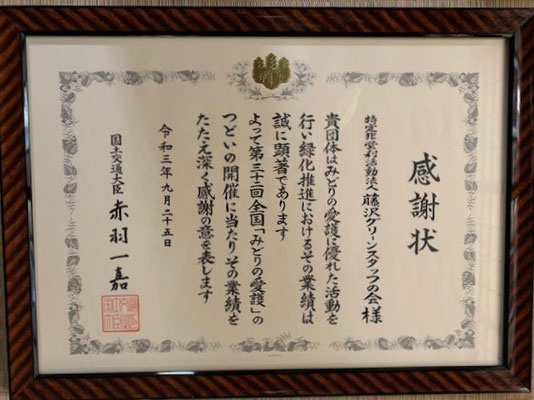 感謝状
特定非営利活動法人 藤沢グリーンスタッフの会 様
貴団体はみどりの愛護に優れた活動を
行い緑化推進におけるその業績は
誠に顕著であります
よって第三十二回全国「みどりの愛護」の
つどいの開催に当たりその業績を
たたえ深く感謝の意を表します
令和三年九月二十五日
国土交通大臣 赤羽一嘉